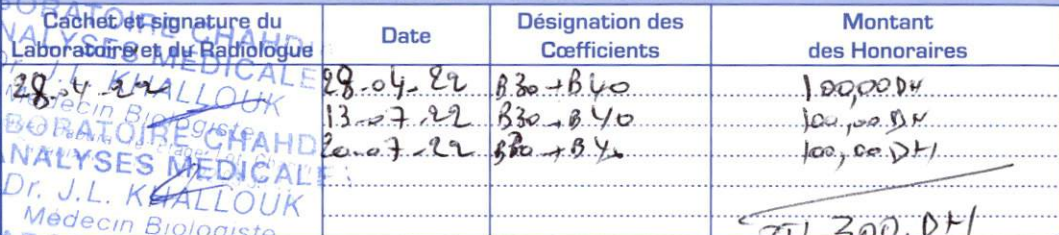 Cachet et signature du Laboratoire et du Radiologue
Date
Désignation des Cœfficients
Montant des Honoraires
28.04.22 28.04.22 B30+B40 100,00DH
13.07.22 B30+B40 100,00DH
20.07.22 B30+B40 100,00DH
300.DH
LABORATOIRE CHAHD
ANALYSES MEDICALE
Dr. J.L. KHALLOUK
Médecin Biologiste
LABORATOIRE CHAHD
ANALYSES MEDICALE
Dr. J.L. KHALLOUK
Médecin Biologiste